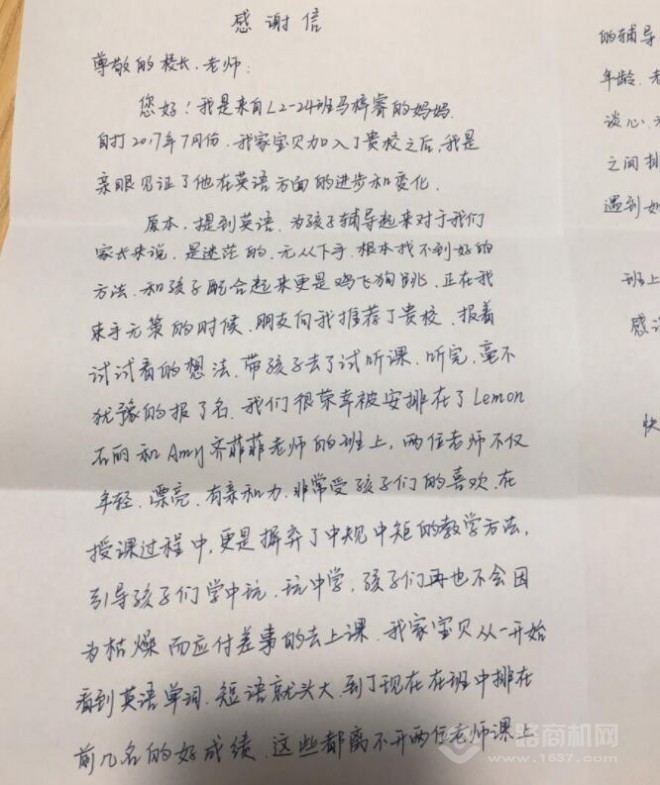 感谢信
尊敬的校长、老师:
您好!我是来自L2-24班马梓睿的妈妈.
自打2017年7月份,我家宝贝加入了贵校之后,我是
亲眼见证了他在英语方面的进步和变化.
原本,提到英语,为孩子辅导起来对于我们
家长来说,是迷茫的,无从下手,根本找不到好的
方法.和孩子配合起来更是鸡飞狗跳,正在我
束手无策的时候,朋友向我推荐了贵校,报着
试试看的想法,带孩子去了试听课,听完,毫不
犹豫的报了名.我们很荣幸被安排在了Lemon
石丽和Amy齐菲菲老师的班上,两位老师不仅
年轻、漂亮、有亲和力,非常受孩子们的喜欢,在
授课过程中,更是摒弃了中规中矩的教学方法,
引导孩子们学中玩、玩中学,孩子们再也不会因
为枯燥而应付差事的去上课.我家宝贝从一开始
看到英语单词、短语就头大,到了现在在班中排在
前几名的好成绩,这些都离不开两位老师课上
的辅导
年龄、老
谈心、
之间排
遇到如
班上
感谢
快
一路商机网
www.1637.com